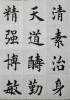 清素治身
天道酬勤
精强博敏